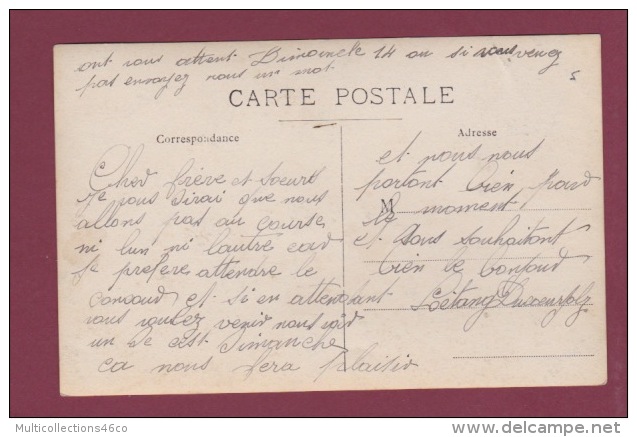 ont vous attent Dimanche 14 ou si vous venez
pas envoyez nous un mot
CARTE POSTALE
Correspondance
Adresse
Cher frère et soeurs
Je vous dirai que nous
allons pas au course
ni lun ni lautre car
Je prefere attendre le
concour et si en attendant
vous voulez venir nous voir
un de cest Dimanche
ca nous fera plaisir
et nous nous
portont bien pour
M
le moment
et vous souhaitont
bien le bonjour
Multicollections46co
www.delcampe.net